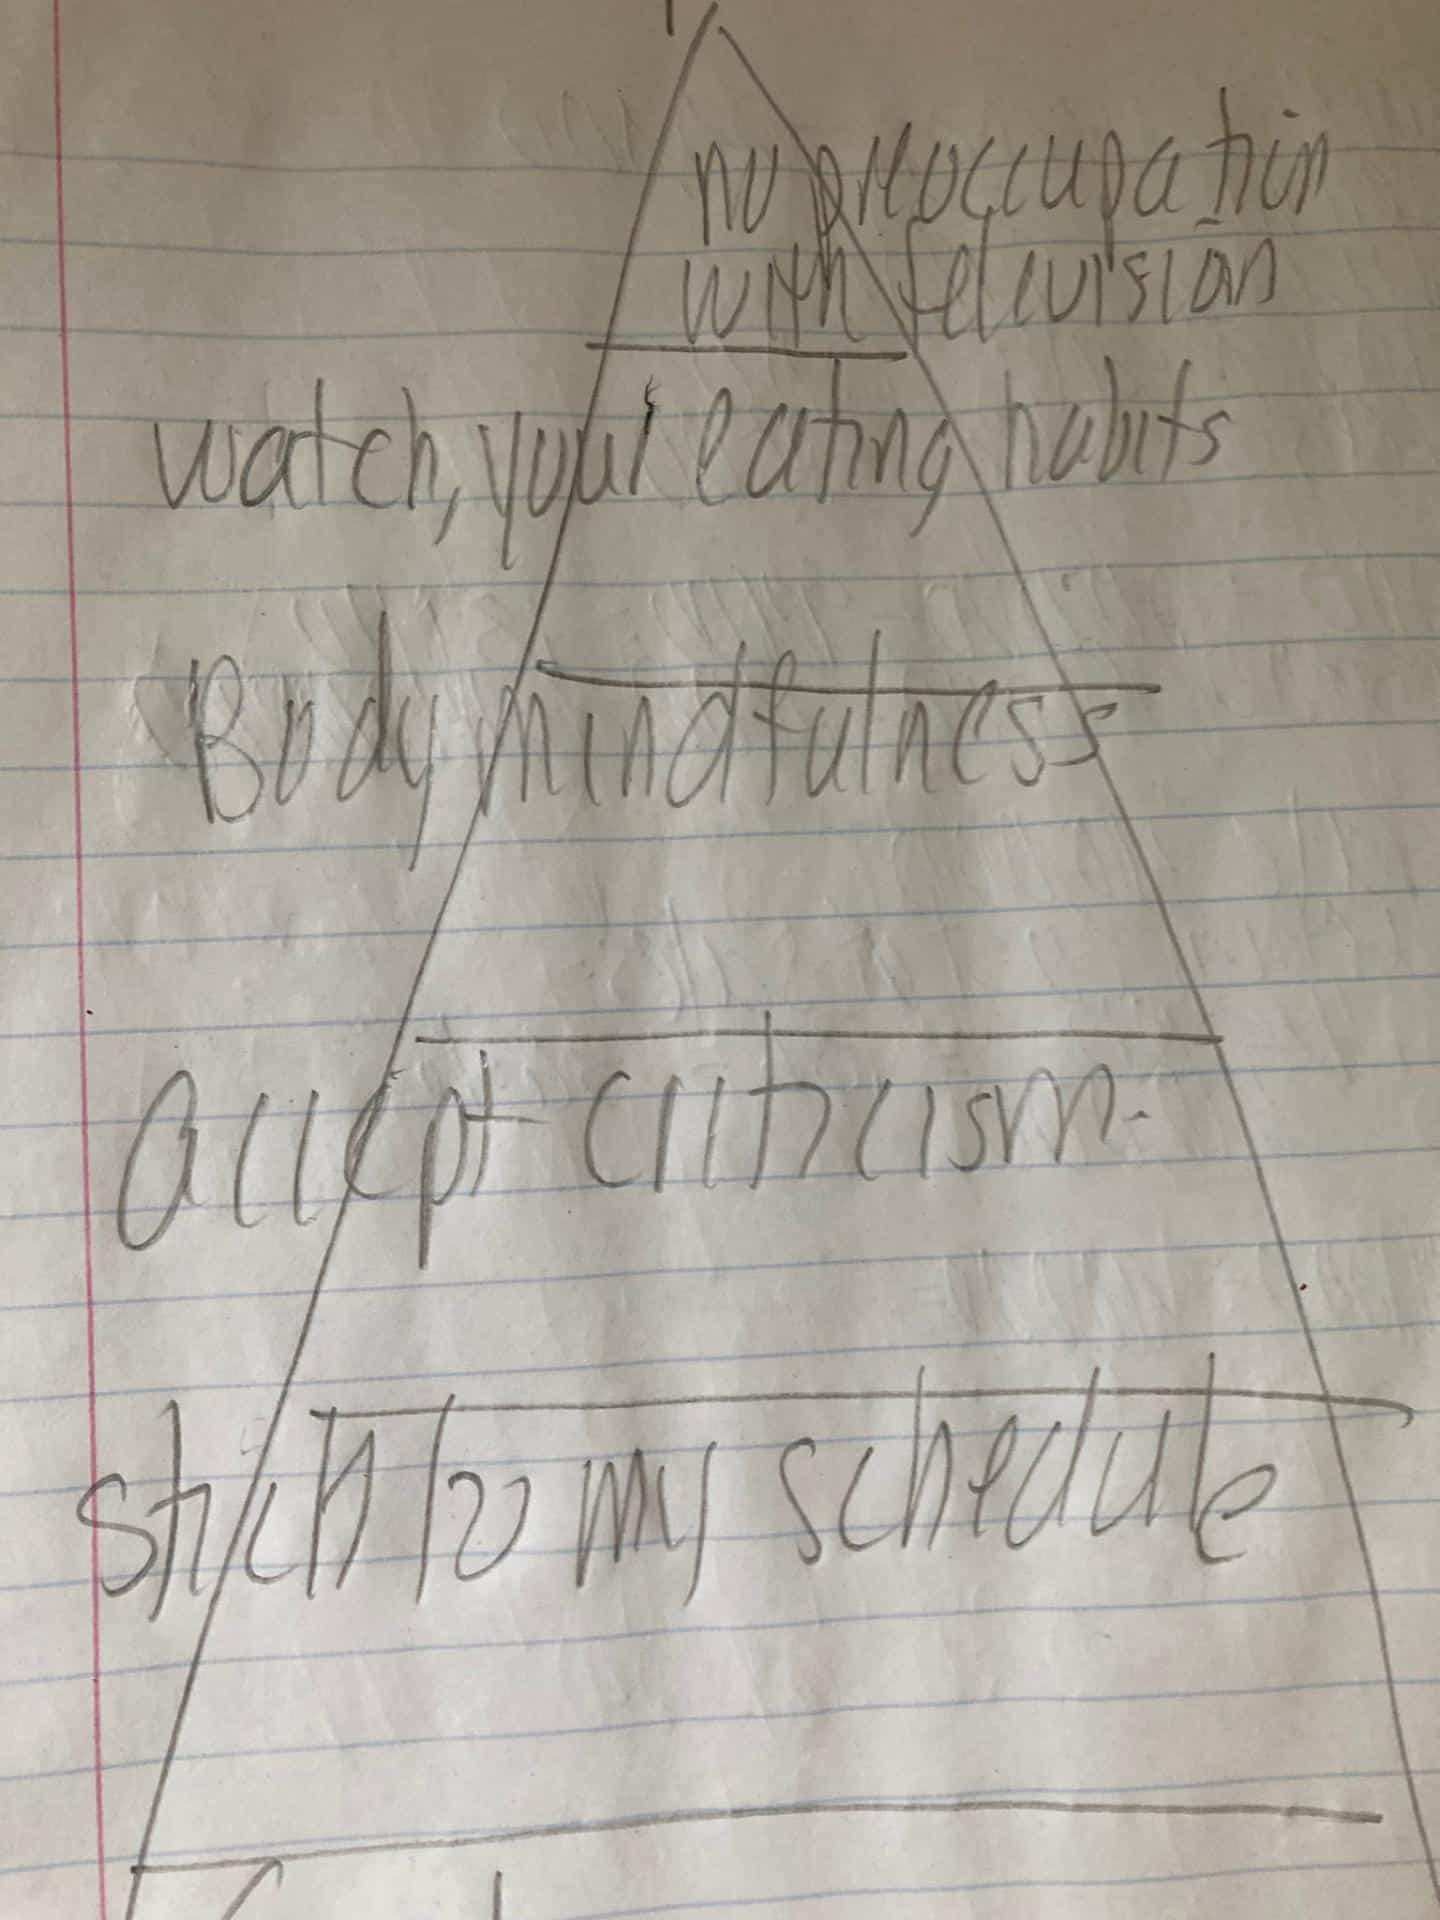 no preoccupation
with television
watch, your eating habits
Body mindfulness
accept criticism.
stick to my schedule